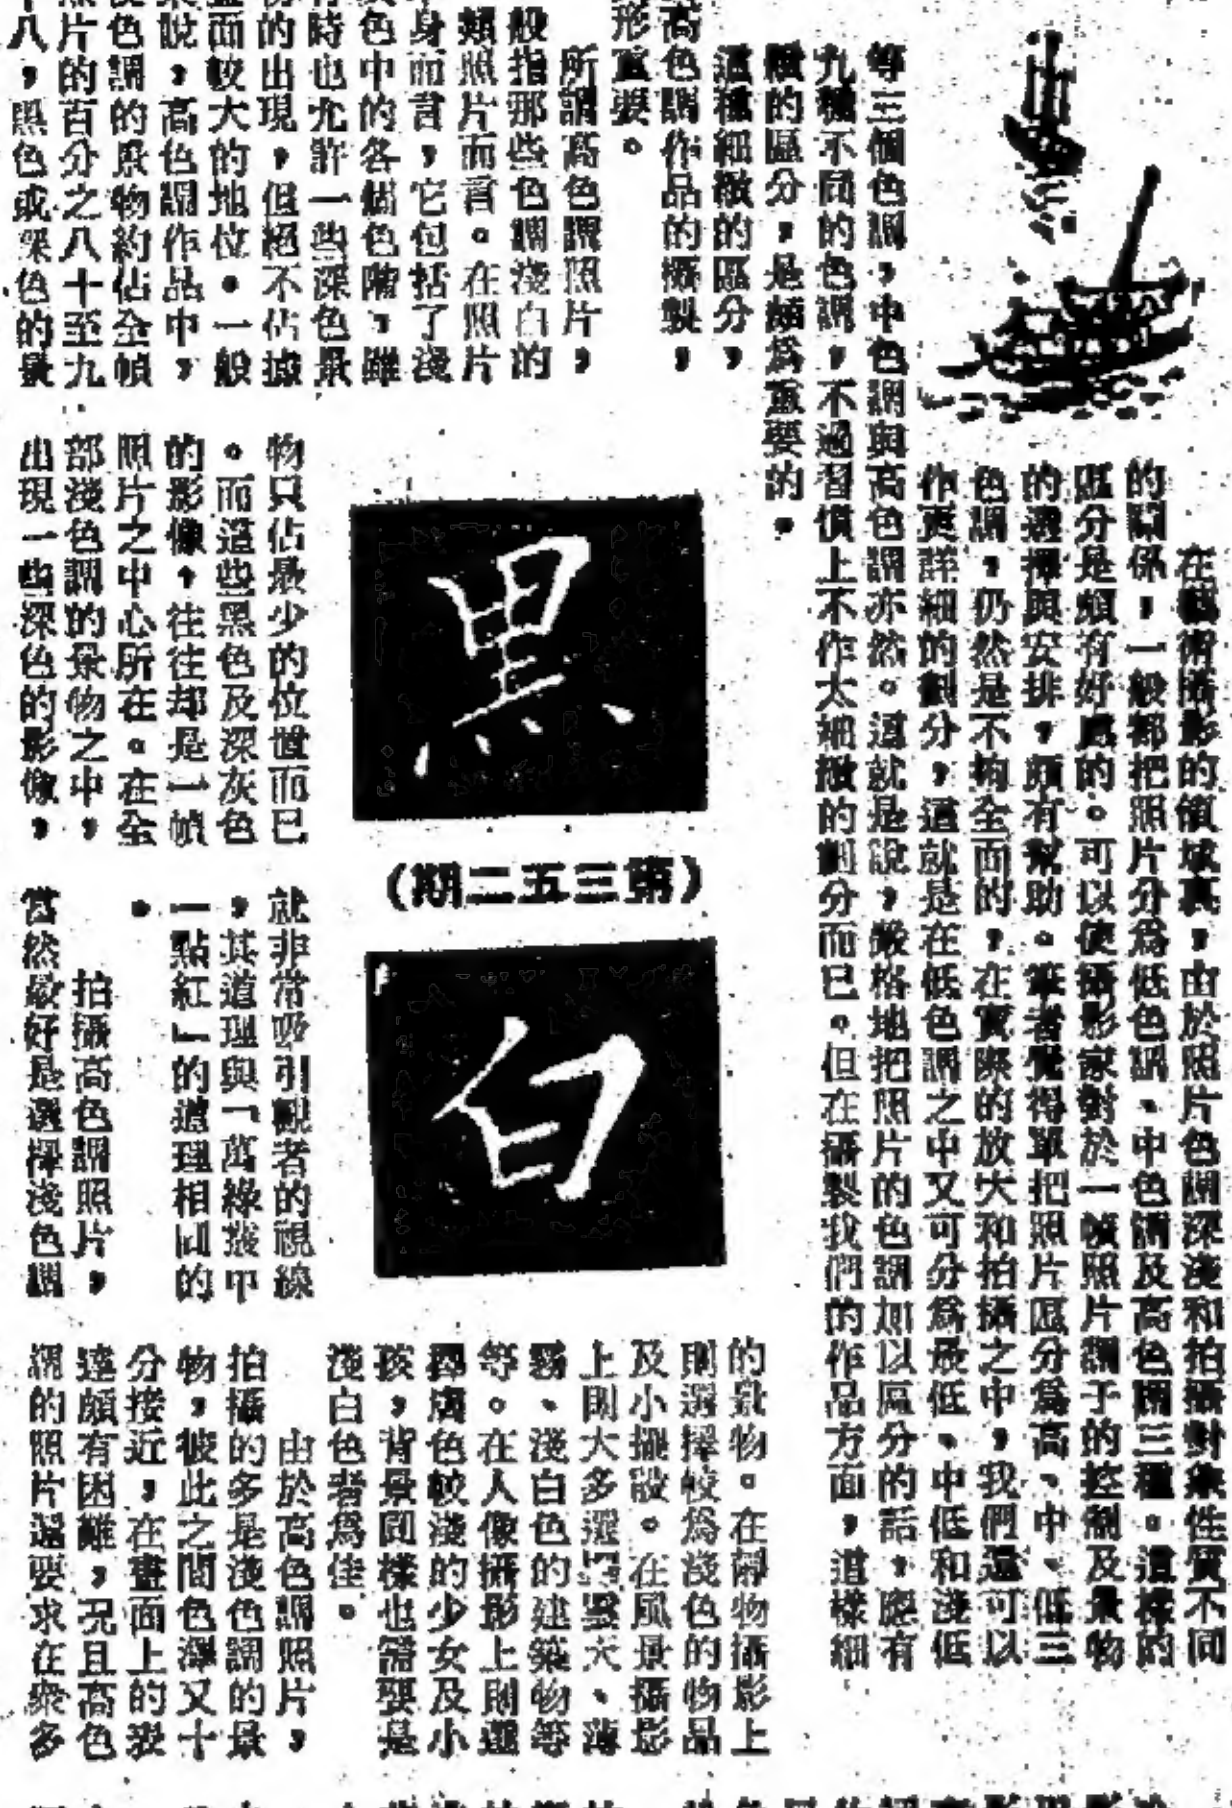 在藝術攝影的領域裏，由於照片色調深淺和拍攝對象性質不同
的關係，一般都把照片分爲低色調、中色調及高色調三種。這樣的
區分是頗有好處的。可以使攝影家對於一幀照片調子的控制及景物
的選擇與安排，頗有幫助。筆者覺得單把照片區分爲高、中、低三
色調，仍然是不夠全面的，在實際的放大和拍攝之中，我們還可以
作更詳細的劃分，這就是在低色調之中又可分爲最低、中低和淺低
等三個色調，中色調與高色調亦然。這就是說，嚴格地把照片的色調加以區分的話，應有
九種不同的色調，不過習慣上不作太細緻的劃分而已。但在攝製我們的作品方面，這樣細
緻的區分，是頗爲重要的。
這種細緻的區分，
高色調作品的攝製，
形重要。
所謂高色調照片，
般指那些色調淺白的
類照片而言。在照片
身而言，它包括了淺
色中的各個色階，雖
時也允許一些深色景
的出現，但絕不佔據
面較大的地位。一般
說，高色調作品中，
色調的景物約佔全幀
照片的百分之八十至九
八，黑色或深色的景
物只佔最少的位置而已
。而這些黑色及深灰色
的影像，往往却是一幀
照片之中心所在。在全
部淺色調的景物之中，
出現一些深色的影像，
黑
(第三五二期)
白
就非常吸引觀者的視線
，其道理與「萬綠叢中
一點紅」的道理相同的
。
拍攝高色調照片，
當然最好是選擇淺色調
的景物。在靜物攝影上
則選擇較爲淺色的物品
及小擺設。在風景攝影
上則大多選擇雪天、薄
霧、淺白色的建築物等
等。在人像攝影上則選
擇膚色較淺的少女及小
孩，背景同樣也需要是
淺白色者爲佳。
由於高色調照片，
拍攝的多是淺色調的景
物，彼此之間色澤又十
分接近，在畫面上的表
達頗有困難，況且高色
調的照片還要求在衆多